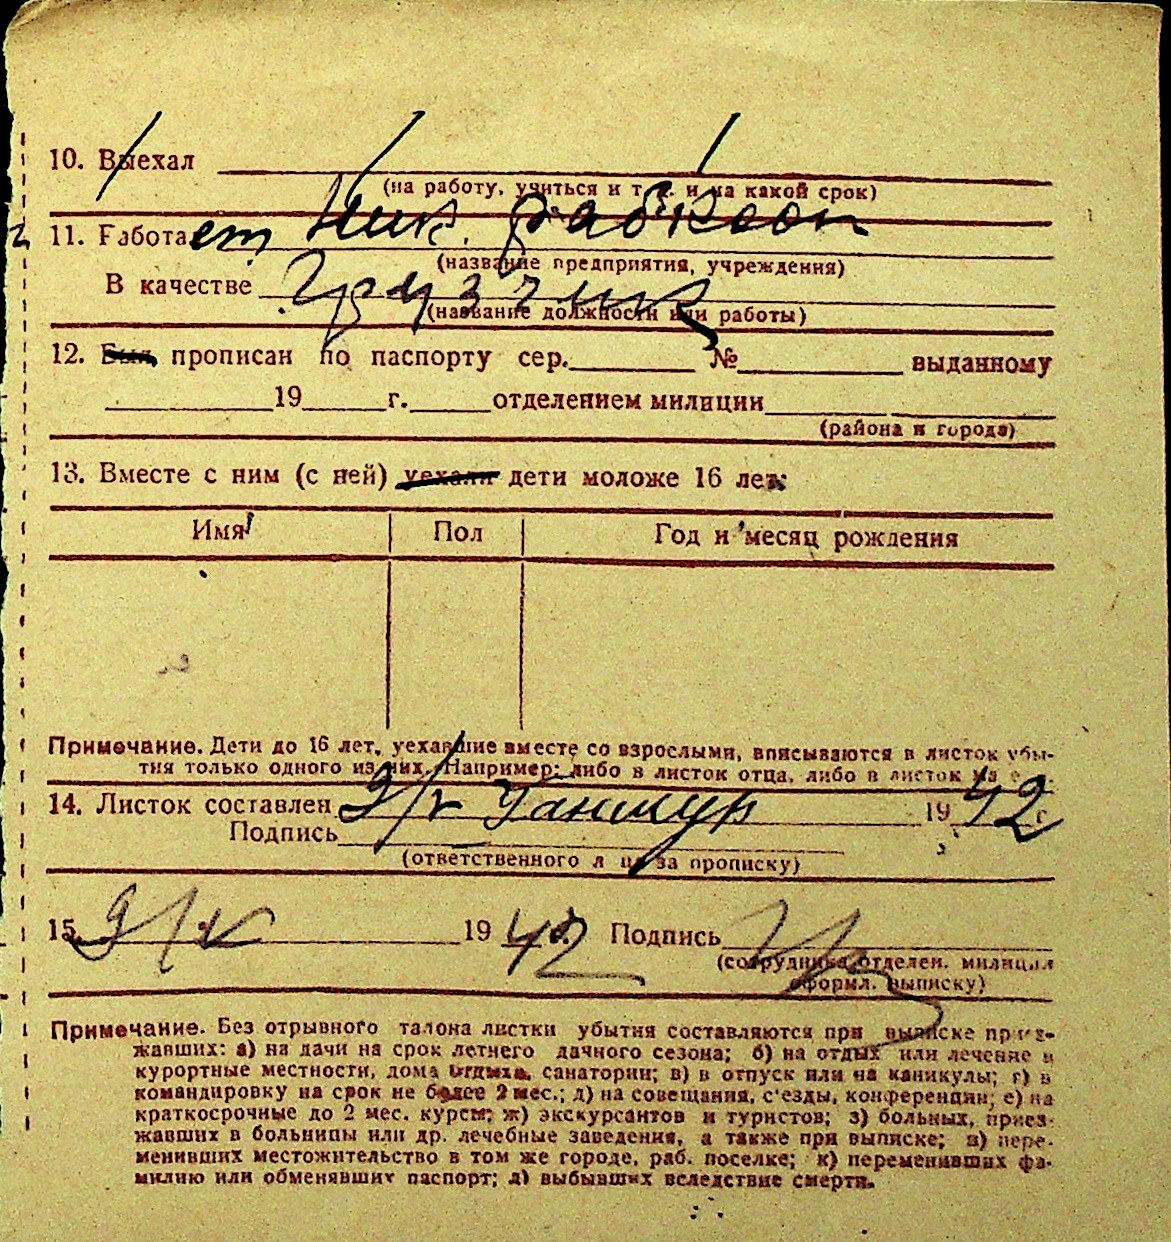 10. Выехал
(на работу, учиться и т. д. и на какой срок)
11. Работает Ник. рабкооп
(название предприятия, учреждения)
В качестве грузчик
(название должности или работы)
12. Был прописан по паспорту сер. № выданному
19 г. отделением милиции
(района и города)
13. Вместе с ним (с ней) уехали дети моложе 16 лет:
Имя Пол Год и месяц рождения
Примечание. Дети до 16 лет, уехавшие вместе со взрослыми, вписываются в листок убы-
тия только одного из них. Например: либо в листок отца, либо в листок
14. Листок составлен 19 42 г
Подпись
(ответственного лица за прописку)
15. 19 42 Подпись
(сотрудника отделен. милиции
оформл. выписку)
Примечание. Без отрывного талона листки убытия составляются при выписке приез-
жавших: а) на дачи на срок летнего дачного сезона; б) на отдых или лечение в
курортные местности, дома отдыха, санатории; в) в отпуск или на каникулы; г) в
командировку на срок не более 2 мес.; д) на совещания, с'езды, конференции; е) на
краткосрочные до 2 мес. курсы; ж) экскурсантов и туристов; з) больных, приез-
жавших в больницы или др. лечебные заведения, а также при выписке; и) пере-
менивших местожительство в том же городе, раб. поселке; к) переменивших фа-
милию или обменявших паспорт; л) выбывших вследствие смерти.